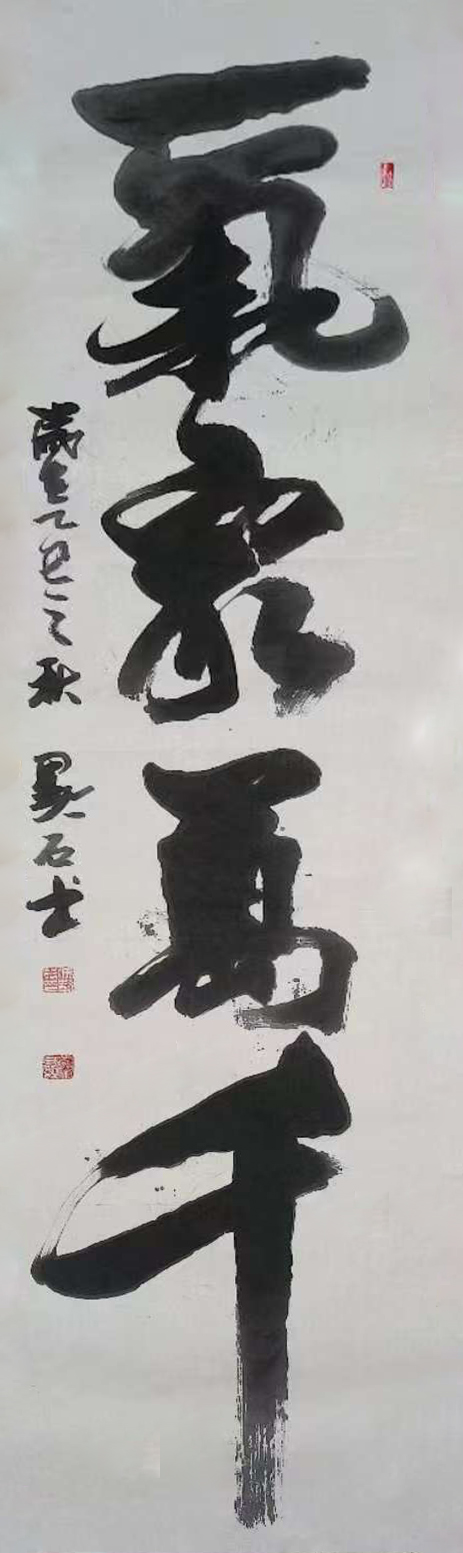 氣象萬千
歲在乙丑之秋 墨石書